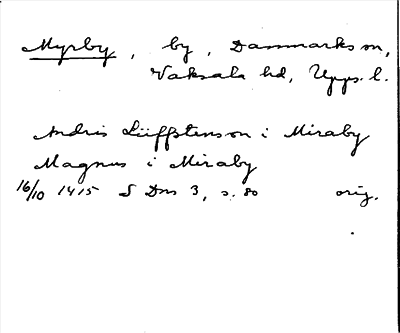 Myrby, by, Danmarks sn,
Vaksala hd, Upps. l.
Andris Lüffstenson i Miraby
Magnus i Miraby
16/10 1415 S Dns 3, s. 80 orig.